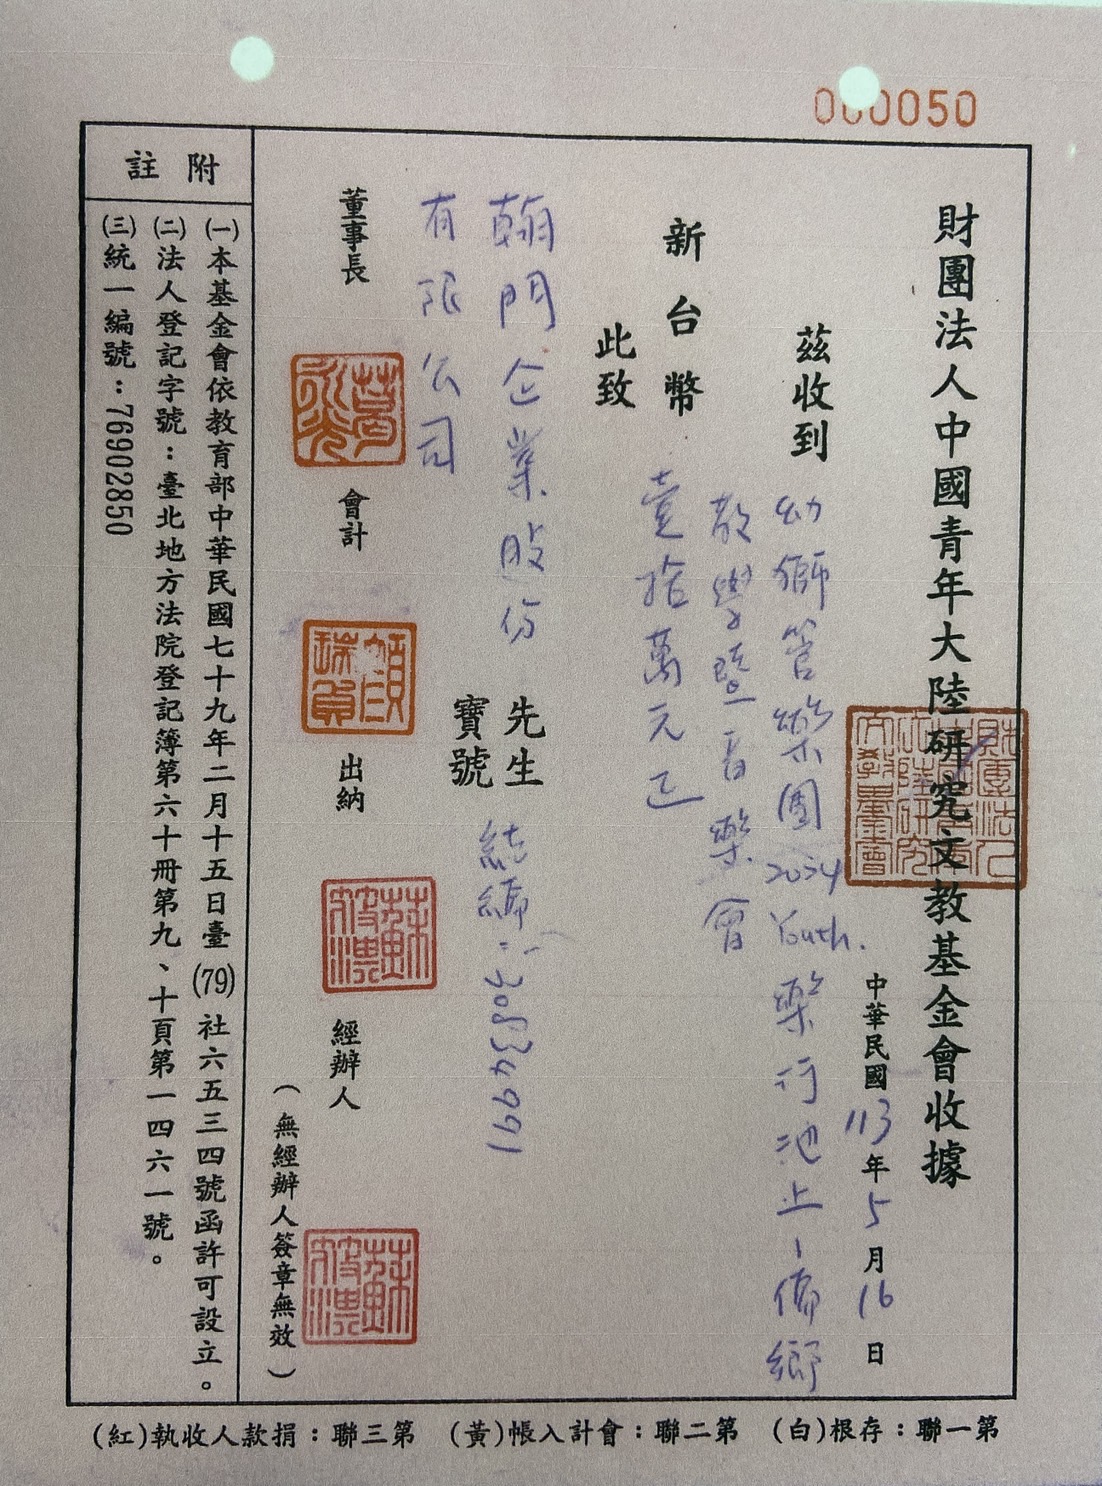 000050
財團法人中國青年大陸研究文教基金會收據
中華民國113年5月16日
茲收到 幼獅管樂團2024 Youth. 樂行池上-偏鄉
教學暨音樂會
新台幣 壹拾萬元正
此致
翰門企業股份 先生 統編：20834991
有限公司 寶號
董事長 會計 出納 經辦人
(無經辦人簽章無效)
附註
㈠本基金會依教育部中華民國七十九年二月十五日臺(79)社六五三四號函許可設立。
㈡法人登記字號：臺北地方法院登記簿第六十冊第九、十頁第一四六一號。
㈢統一編號：76902850
第一聯：存根(白)
第二聯：會計入帳(黃)
第三聯：捐款人收執(紅)